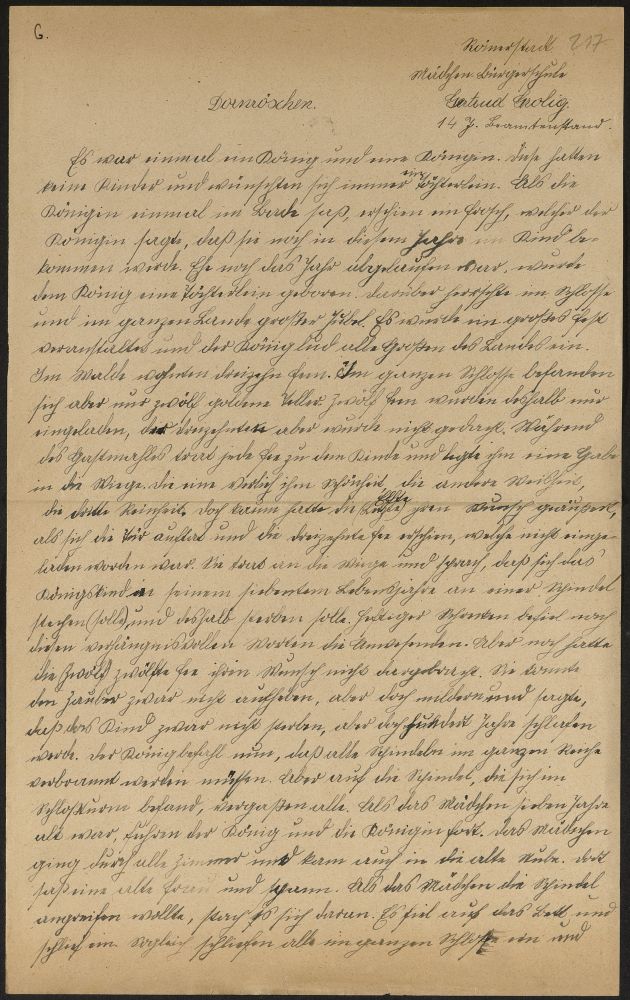 6.
Römerstadt 217
Mädchen-Bürgerschule
Dornröschen. Gertrud Grolig.
14 J. Beamtenstand.
Es war einmal ein König und eine Königin. Diese hatten
keine Kinder und wünschten sich immer ein Töchterlein. Als die
Königin einmal im Bade saß, erschien ein Frosch, welcher der
Königin sagte, daß sie noch in diesem Jahre ein Kind be-
kommen werde. Ehe noch das Jahr abgelaufen war, wurde
dem König eine Töchterlein geboren. Darüber herrschte im Schlosse
und im ganzen Lande großer Jubel. Es wurde ein großes Fest
veranstaltet und der König lud alle Großen des Landes ein.
Im Walde wohnten dreizehn Feen. Im ganzen Schlosse befanden
sich aber nur zwölf goldene Teller. Zwölf Feen wurden deshalb nur
eingeladen, der dreizehnten aber wurde nicht gedacht. Während
des Gastmahles trat jede Fee zu dem Kinde und legte ihm eine Gabe
in die Wiege. Die eine verlieh ihm Schönheit, die andere Weisheit,
die dritte Reinheit. Doch kaum hatte die elfte ihren Wunsch geäußert,
als sich die Tür auftat und die dreizehnte Fee erschien, welche nicht einge-
laden worden war. Sie trat an die Wiege und sprach, daß sich das
Königskind in seinem siebenten Lebensjahre an einer Spindel
stechen (solle) und deshalb sterben solle. Heftiger Schrecken befiel nach
diesen verhängnisvollen Worten die Anwesenden. Aber noch hatte
die zwölf zwölfte Fee ihren Wunsch nicht dargebracht. Sie konnte
den Zauber zwar nicht aufheben, aber doch mildern und sagte,
daß das Kind zwar nicht sterben, aber doch hundert Jahre schlafen
werde. Der König befahl nun, daß alle Spindeln im ganzen Reiche
verbrannt werden müssen. Aber auf die Spindel, die sich im
Schloßturm befand, vergaßen alle. Als das Mädchen sieben Jahre
alt war, fuhren der König und die Königin fort. Das Mädchen
ging durch alle Zimmer und kam auch in die alte Stube. Dort
saß eine alte Frau und spann. Als das Mädchen die Spindel
angreifen wollte, stach es sich daran. Es fiel auf das Bett und
schlief ein. Sogleich schliefen alle im ganzen Schlosse ein und